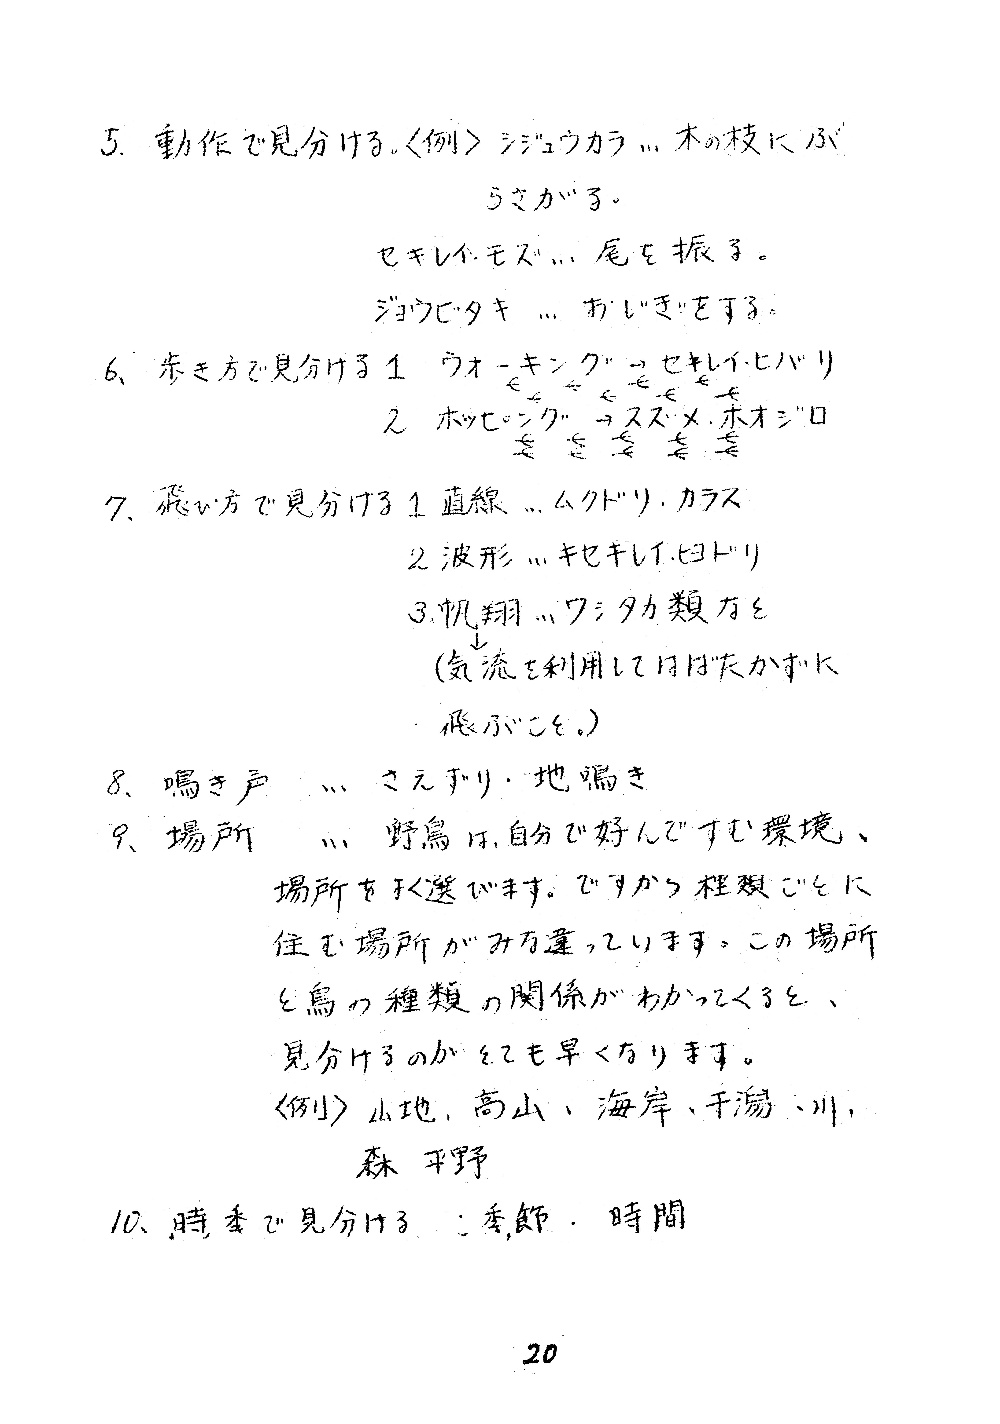 5、動作で見分ける。〈例〉シジュウカラ…木の枝にぶ
らさがる。
セキレイ・モズ…尾を振る。
ジョウビタキ…おじぎをする。
6、歩き方で見分ける 1 ウオーキング→セキレイ・ヒバリ
2 ホッピング→スズメ・ホオジロ
7、飛び方で見分ける 1 直線…ムクドリ・カラス
2 波形…キセキレイ・ヒヨドリ
3.帆翔…ワシタカ類など
↓
(気流を利用してはばたかずに
飛ぶこと。)
8、鳴き声…さえずり・地鳴き
9、場所…野鳥は、自分で好んですむ環境、
場所をよく選びます。ですから種類ごとに
住む場所がみな違っています。この場所
と鳥の種類の関係がわかってくると、
見分けるのがとても早くなります。
〈例〉山地、高山、海岸、干潟、川、
森 平野
10、時季で見分ける：季節・時間
20